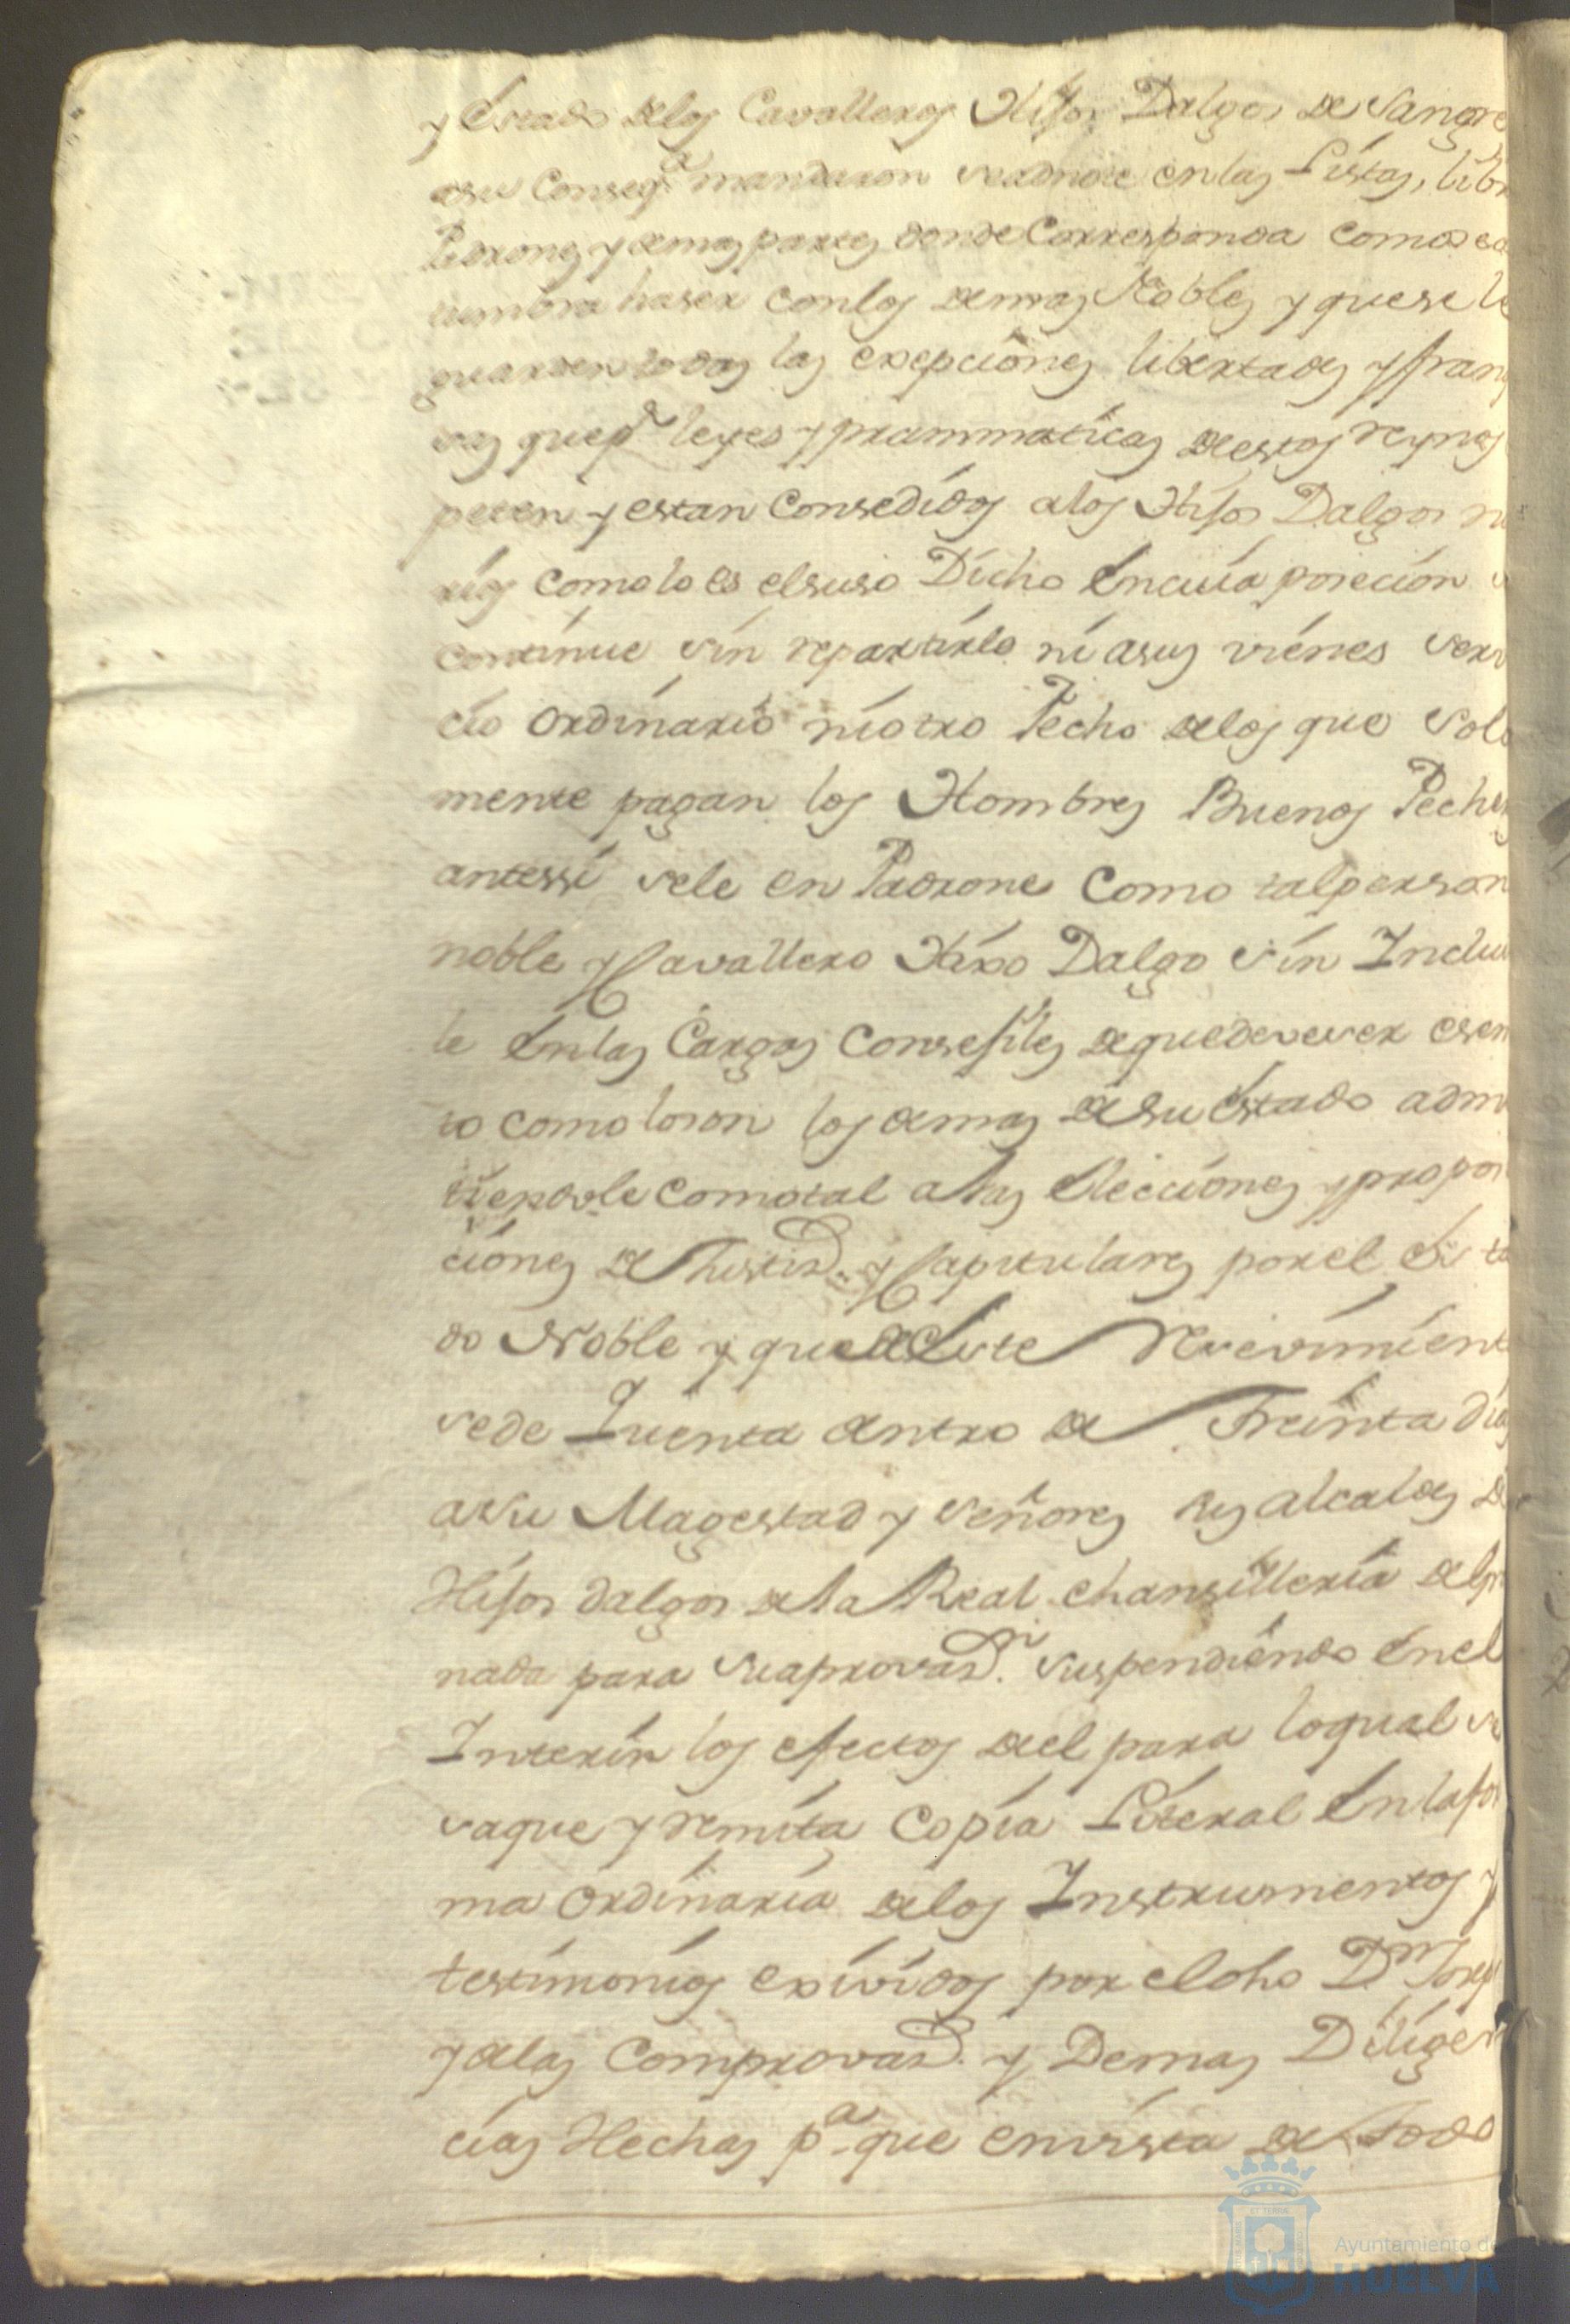 y Estado delos Cavalleros Hijos Dalgo de Sangre
asu Conseqª mandaron seadnote enlas Listas, libr
Pedrones y demas partes donde Corresponda como es a
tumbra haser conlos demas Nobles y que se le
guarden todas las exepciones libertades y fran
sas que pʳ leyes y prammaticas deestos reynos
peten y estan Consedidos alos Hijos Dalgo n
rios como lo es elsuso Dicho Encuia posecion
continue sin repartirlo ni asus vienes serv
cio ordinario ni otro Pecho delos que Sola
mente pagan los Hombres Buenos Peche
antessi sele en Padrone Como talperson
noble y Cavallero Hixo Dalgo sin Inclui
le Enlas Cargas Consejiles dequedeveser esen
to como loson los demas de su Estado admi
tiendole comotal alas Elecciones y propo
ciones de Justisª y Capitulares porel Esta
do Noble y quedeEste Resevimient
sede Quenta dentro de Treinta dias
asu Magestad y señores sus alcaldes de
Hijos dalgos dela Real chansilleria deGra
nada para suaprovasⁿ. suspendiendo Enel
Interin los efectos del para loqual se
saque y remita Copia Literal Enlafor
ma ordinaria delos Instrumentos y
testimonios exividos por eldho Dⁿ Josep
y delas Comprovasⁿ. y Demas Diligen
cias Hechas pª. que envista de todo
Ayuntamiento de
HUELVA